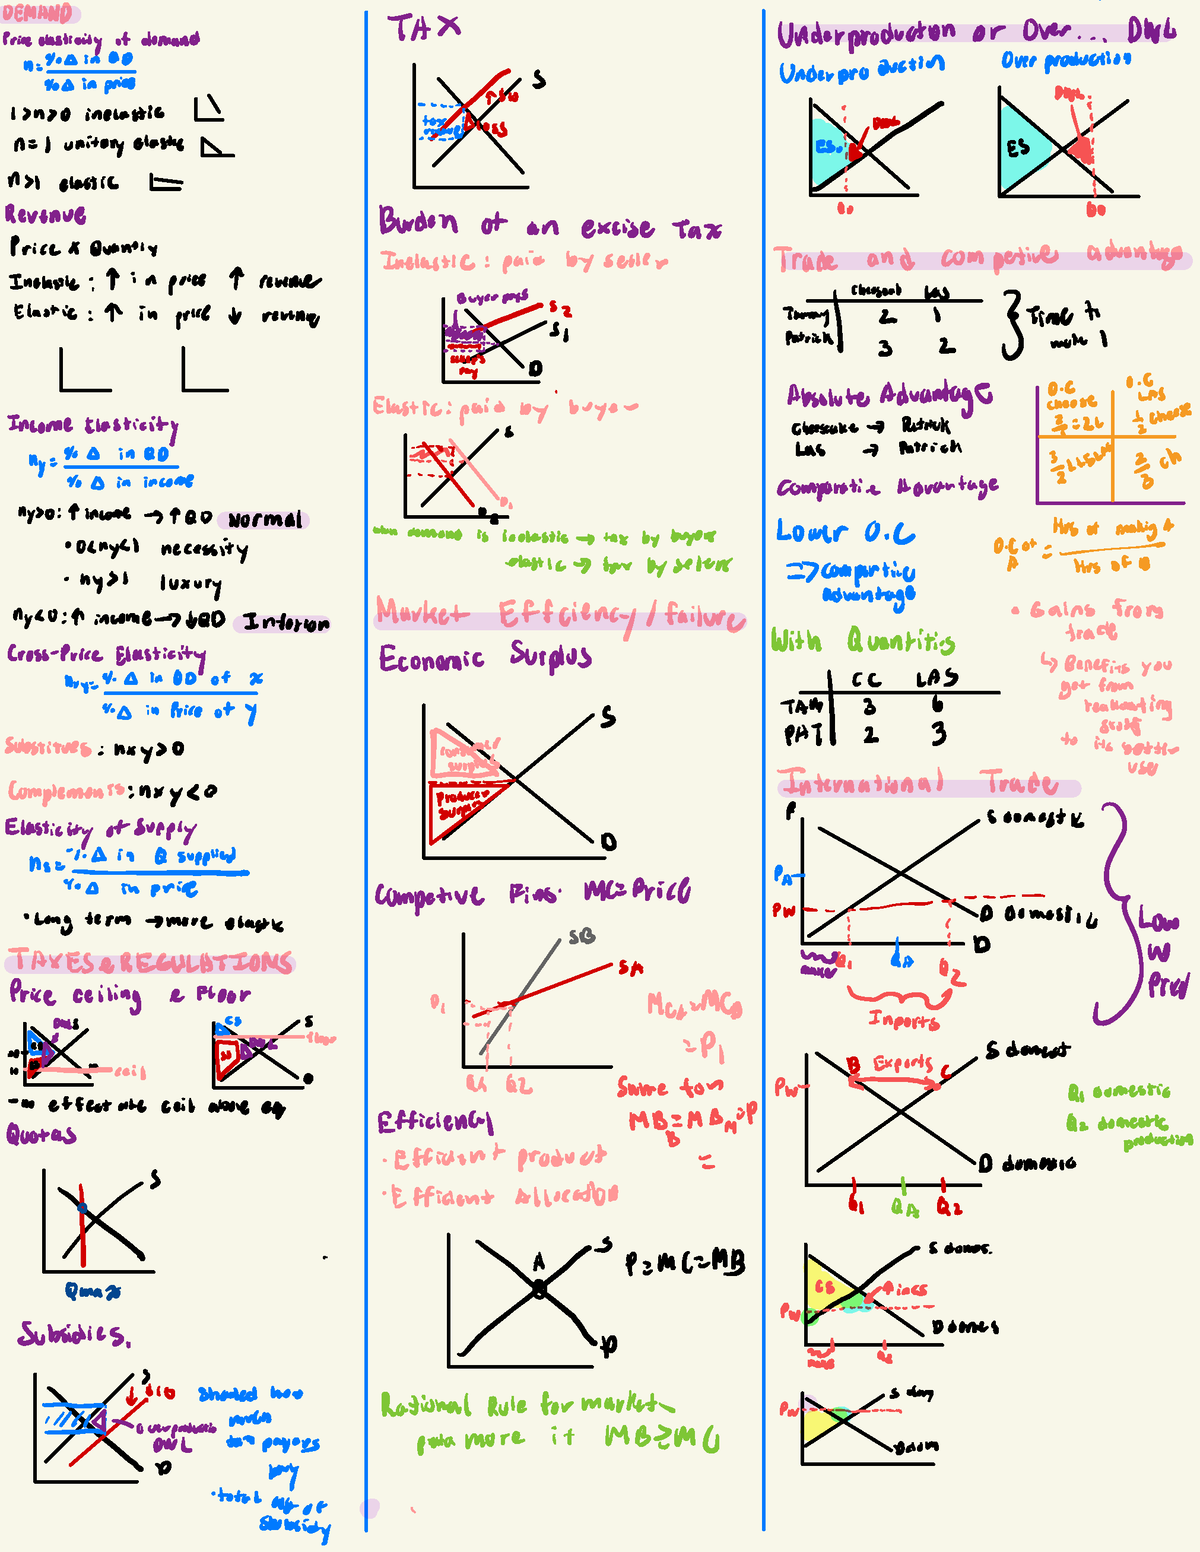 DEMAND
Price elasticity of demand
n = % Δ in QD
% Δ in price
1>n>0 inelastic
n=1 unitary elastic
n>1 elastic
Revenue
Price x Quantity
Inelastic: ↑ in price ↑ revenue
Elastic: ↑ in price ↓ revenue
Income Elasticity
ny = % Δ in QD
% Δ in income
ny>0: ↑ income → ↑ QD Normal
• 0<ny<1 necessity
• ny>1 luxury
ny<0: ↑ income → ↓QD
Cross-Price Elasticity
nxy = % Δ in QD of x
% Δ in Price of Y
: nxy>0
Complements: nxy<0
Elasticity of Supply
ns = % Δ in Q supplied
% Δ in price
• Long term → more elastic
TAXES & REGULATIONS
Price ceiling & Floor
DWLS
ceil
CS
S
floor
D
Quotas
S
Qmax
Subsidies.
S
DWL
D
Shaded
tax payers
pay
• total
of
subsidy
TAX
S
tax
Burden of an excise Tax
Inelastic: paid by seller
Buyer pays
S2
S1
D
Elastic: paid by buyer
S
demand is inelastic → tax by buyers
elastic → tax by sellers
Market Effciency/failure
Economic Surplus
S
surplus
Producer
Surplus
D
MC=Price
SB
SA
P1
Q1 Q2
MCA=MCB
=P1
Same for
MB = MB = P
Efficiency
• Efficient product
• Efficient Allocation
A
S
D
P=MC=MB
Rational Rule for market
more if MB≥MC
Underproduction or Over... DWL
Underproduction
Over production
ES
DWL
Q0
DWL
ES
Q0
Trade and competive advantage
LAS
Tammy 2 1
Patrick 3 2
Time to
make 1
Absolute Advantage
→ Patrick
Las → Patrick
Comparative Advantage
O.C
O.C
LAS
1/2 cheese
2/3 ch
Lower O.C
⇒
advantage
O.C of A = Hrs of making A
Hrs of B
• Gains from
trade
↳ Benefits you
get from
to its better
use
With Quantities
CC LAS
TAM 3 6
PAT 2 3
International Trade
P
S domestic
PA
PW
D domestic
D
Q1 QA Q2
Imports
Low
W
S domest
B Exports C
PW
D domestic
Q1 QA Q2
Q1 domestic
Q2 domestic
production
S domes.
CS
PW
D domes
PW
Ddom